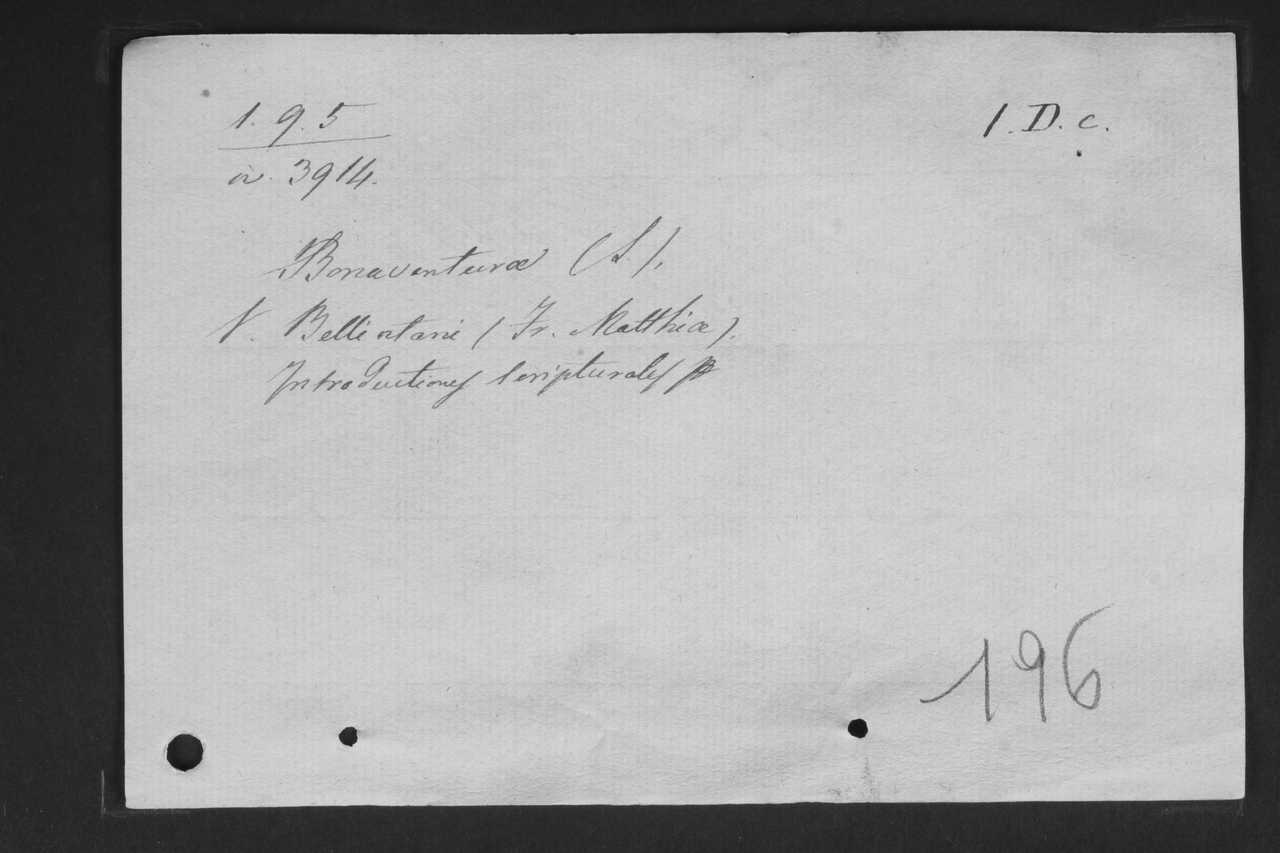 1. 9. 5
1. D. c.
a. 3914.
Bonaventuræ (S.),
V. Bellintani (Fr. Matthiæ).
Introductiones Scripturales
196